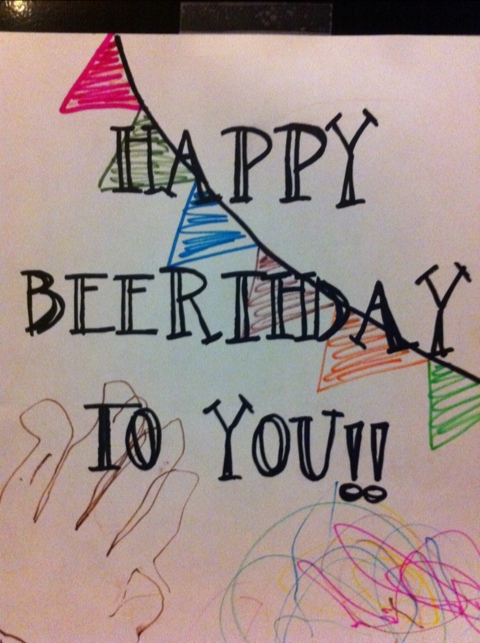 HAPPY
BEERTHDAY
TO YOU!!